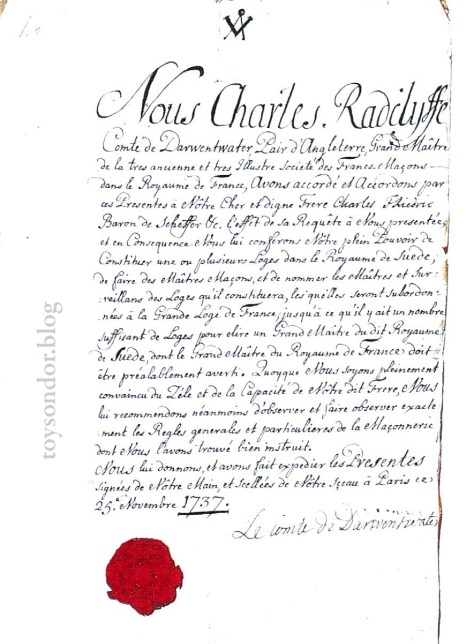 Nous Charles. Radclyffe
Comte de Darwentwater, Pair d'Angleterre, Grand Maître
de la tres ancienne et tres Illustre Societé des Francs-Maçons
dans le Royaume de France, Avons accordé et Accordons par
ces Presentes à Nôtre Cher et digne Frere Charles Friedric
Baron de Scheffer &c. l'effit de sa Requête à Nous presentée,
et en Consequence Nous lui conferons Nôtre plein Pouvoir de
Constituer une ou plusieurs Loges dans le Royaume de Suede,
de faire des Maîtres Maçons, et de nommer les Maîtres et Sur-
veillans des Loges qu'il constituera, les quelles seront subordon-
nées à la Grande Loge de France, jusqu'à ce qu'il y ait un nombre
suffisant de Loges pour elire un Grand Maître du dit Royaume
de Suede, dont le Grand Maître du Royaume de France doit
être préalablement averti. Quoyque Nous soyons pleinement
convaincu du Zéle et de la Capacité de Nôtre dit Frere, Nous
lui recommendons néanmoins d'observer et faire observer exacte
ment les Regles generales et particulieres de la Maçonnerie
dont Nous l'avons trouvé bien instruit.
Nous lui donnons, et avons fait expedier les Presentes
signées de Nôtre Main, et scellées de Nôtre Sçeau à Paris ce
25.e Novembre 1737.
Le comte de Darwentwater
toysondor.blog